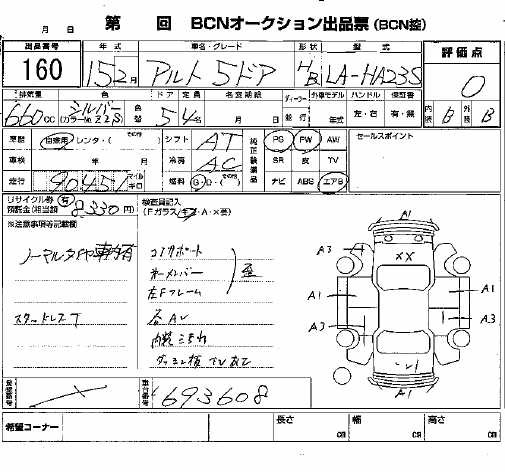 月 日 第 回 BCNオークション出品票 (BCN控)
出品番号 年式 車名・グレード 形状 型式 評価点
160 15 2月 アルト 5ドア HB LA-HA23S 0
排気量 色 色替 ドア 定員 名変期限 ディーラー 外車モデル ハンドル 保証書 内装 外装
660cc シルバー (カラーNo. Z2S) 5 4名 月 日 並行 年式 左・右 有・無 B B
車歴 自家用・レンタ・( その他 ) シフト AT 純正装備品 PS PW AW セールスポイント
車検 年 月 冷房 AC SR 革 TV
走行 90451 マイル キロ 燃料 G・D・( その他 ) ナビ ABS エアB
リサイクル券 有 預託金(相当額 8330円) 検査員記入 (Fガラス/キズ・A・×要)
※注意事項等記載欄
ノーマルタイヤ車内有
コアサポート
左Fフレーム 歪
スタッドレスT 各AU
内装こまれ
A1 A3 XX A1 A1 A3 A3 A1
登録番号 車台番号 693608
希望コーナー 長さ cm 幅 cm 高さ cm